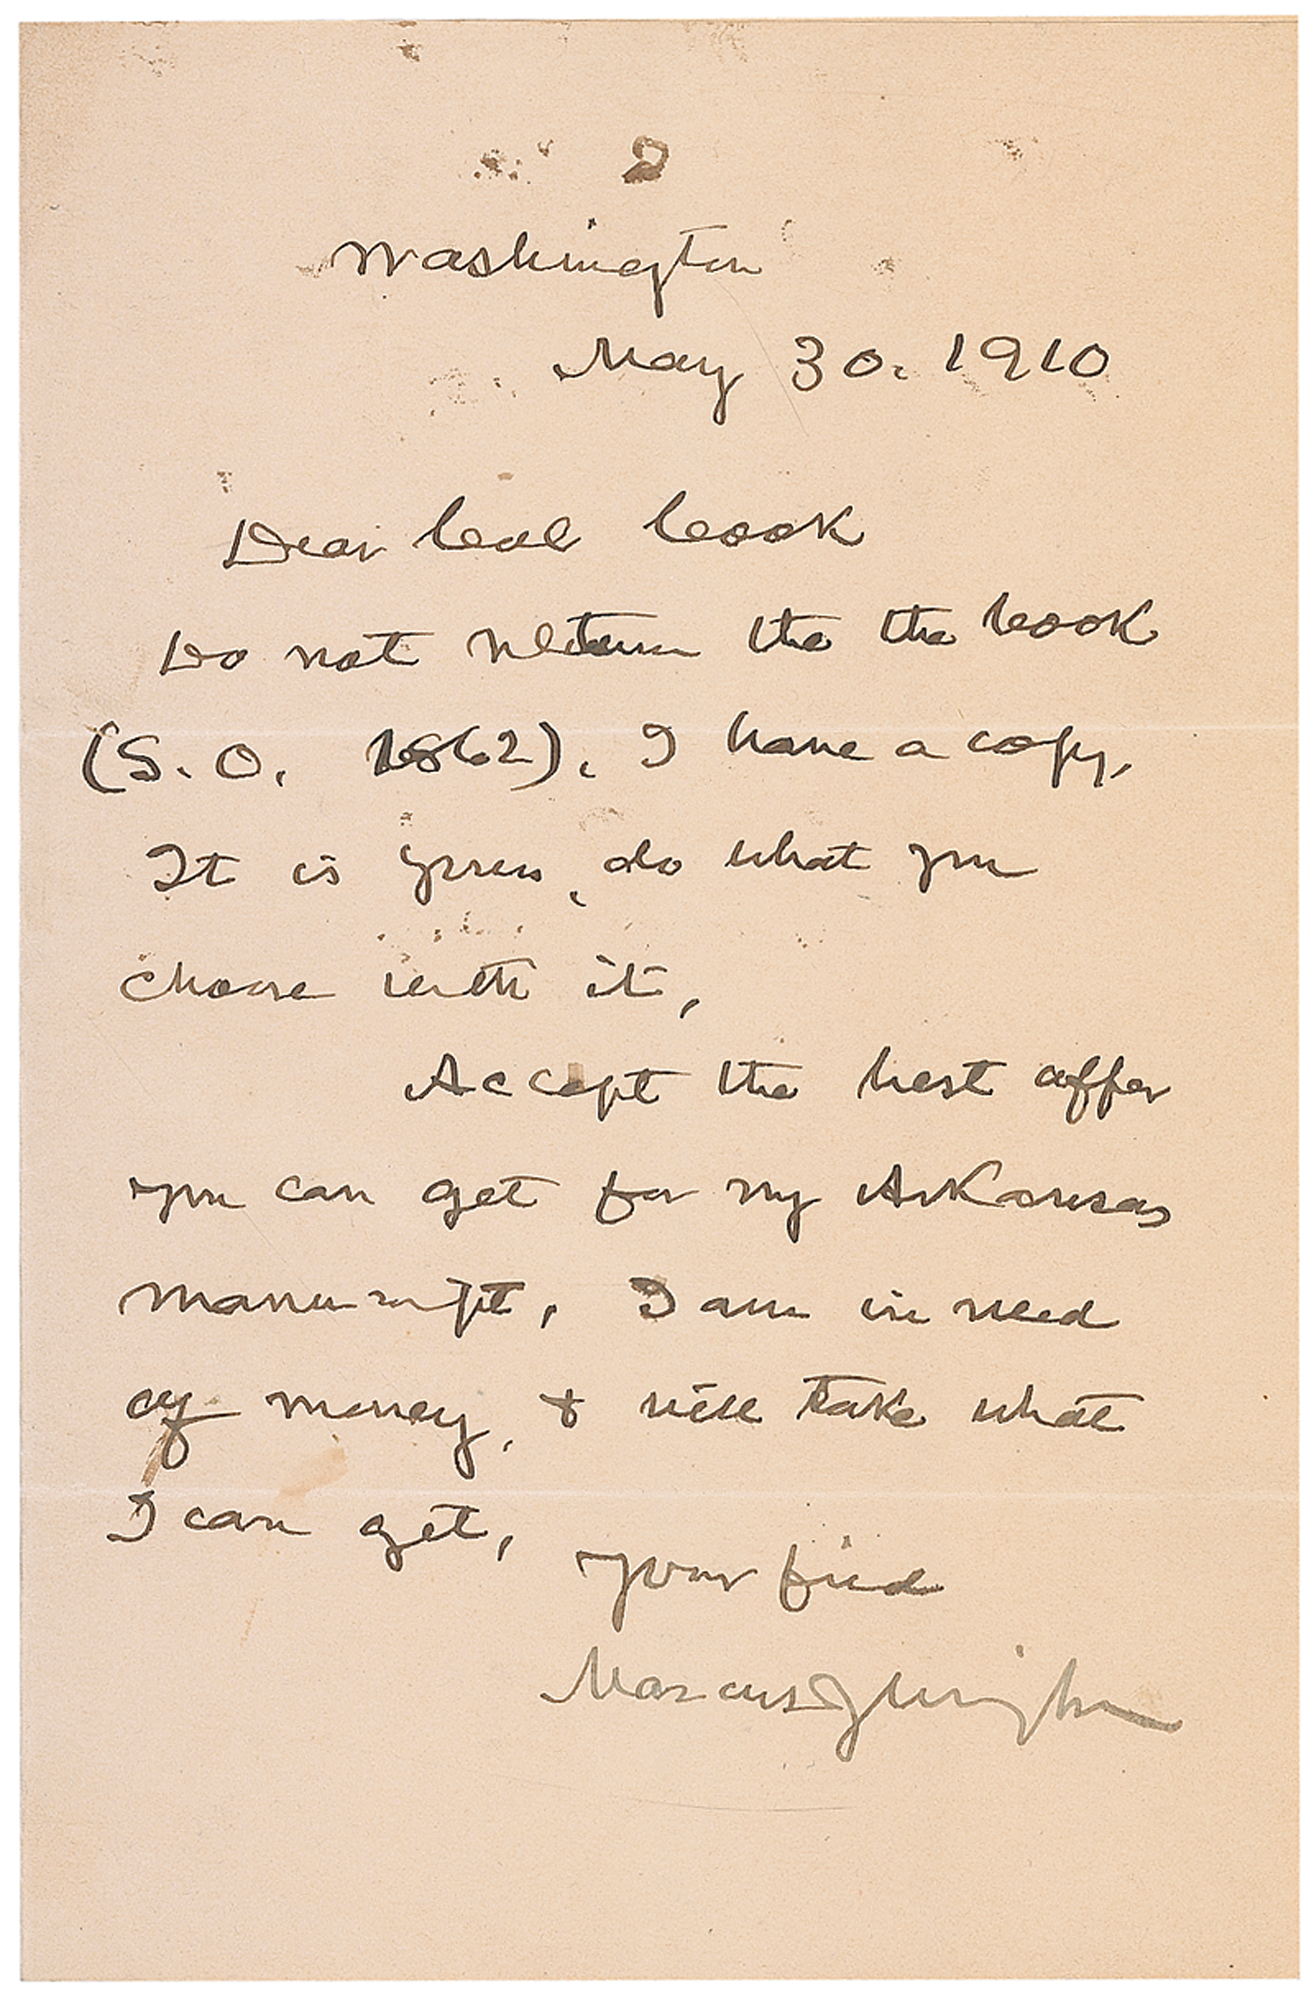 Washington
May 30. 1910
Dear Col Cook
Do not return the the book
(S. O. 1862). I have a copy.
It is yours, do what you
choose with it,
Accept the best offer
you can get for my Arkansas
manuscript, I am in need
of money, & will take what
I can get,
your friend
Marcus J Wright